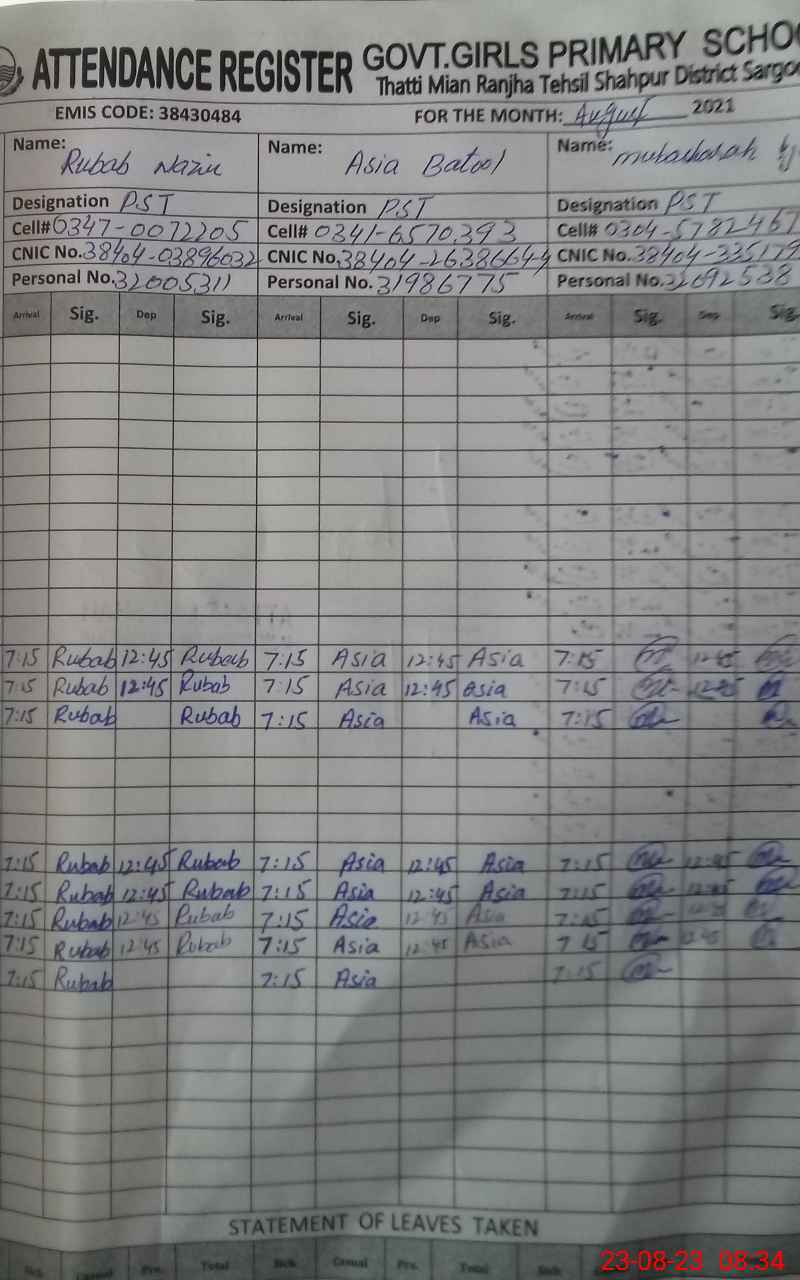 ATTENDANCE REGISTER GOVT.GIRLS PRIMARY SCHOO
Thatti Mian Ranjha Tehsil Shahpur District Sargo
EMIS CODE: 38430484 FOR THE MONTH: August 2021
Name: Rubab Nazir Name: Asia Batool Name: mubasharah
Designation PST Designation PST Designation PST
Cell# 0347-0072205 Cell# 0341-6570393 Cell# 0304-5782467
CNIC No. 38404-03896032 CNIC No. 38404-2638664-4 CNIC No. 38404-335179
Personal No. 32005311 Personal No. 31986775 Personal No. 32092538
Arrival Sig. Dep Sig. Arrival Sig. Dep Sig. Arrival Sig. Dep Sig.
7:15 Rubab 12:45 Rubab 7:15 Asia 12:45 Asia 7:15 12:45
7:15 Rubab 12:45 Rubab 7:15 Asia 12:45 Asia 7:15 12:45
7:15 Rubab Rubab 7:15 Asia Asia 7:15
7:15 Rubab 12:45 Rubab 7:15 Asia 12:45 Asia 7:15 12:45
7:15 Rubab 12:45 Rubab 7:15 Asia 12:45 Asia 7:15 12:45
7:15 Rubab 12:45 Rubab 7:15 Asia 12:45 Asia 7:15
7:15 Rubab 12:45 Rubab 7:15 Asia 12:45 Asia 7:15 12:45
7:15 Rubab 7:15 Asia 7:15
STATEMENT OF LEAVES TAKEN
Sick Casual Prv. Total Sick Casual Prv. Total Sick
23-08-23 08:34